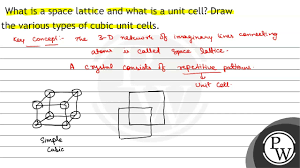 What is a space lattice and what is a unit cell? Draw
the various types of cubic unit cells.
Key Concept:- The 3-D network of imaginary lines connecting
atoms is called Space lattice.
A crystal consists of repetitive patterns.
Unit Cell
Simple
Cubic
PW